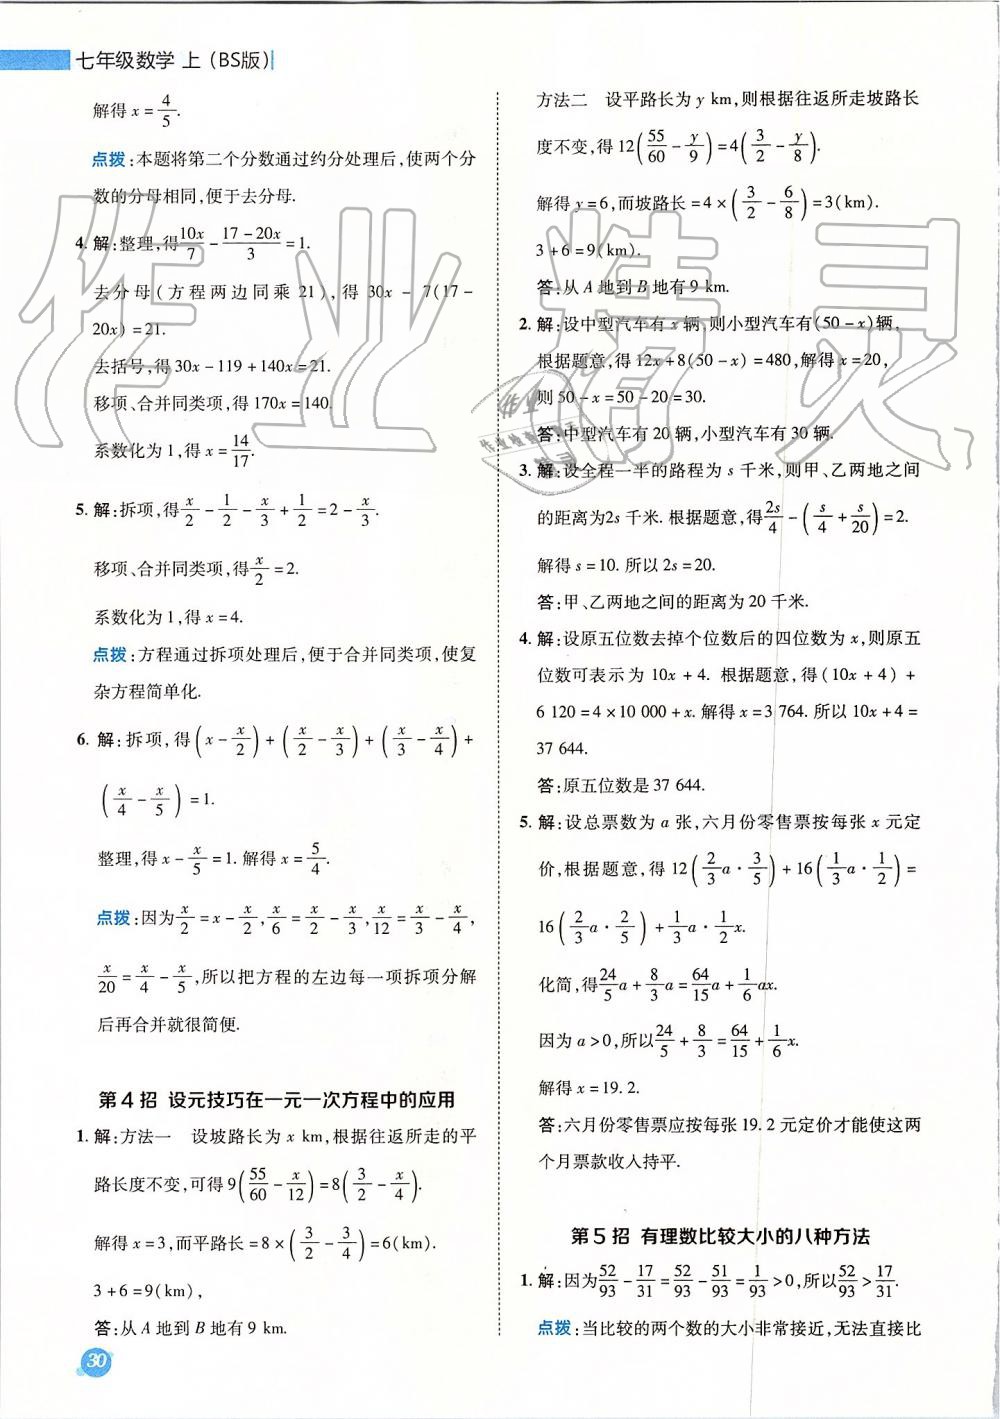 七年级数学 上(BS版)
解得 x=4/5.
点拨:本题将第二个分数通过约分处理后,使两个分
数的分母相同,便于去分母.
4. 解:整理,得10x/7-(17-20x)/3=1.
去分母(方程两边同乘 21),得 30x-7(17-
20x)=21.
去括号,得 30x-119+140x=21.
移项、合并同类项,得 170x=140.
系数化为 1,得 x=14/17.
5. 解:拆项,得x/2-1/2-x/3+1/2=2-x/3.
移项、合并同类项,得x/2=2.
系数化为 1,得 x=4.
点拨:方程通过拆项处理后,便于合并同类项,使复
杂方程简单化.
6. 解:拆项,得(x-x/2)+(x/2-x/3)+(x/3-x/4)+
(x/4-x/5)=1.
整理,得 x-x/5=1. 解得 x=5/4.
点拨:因为x/2=x-x/2,x/6=x/2-x/3,x/12=x/3-x/4,
x/20=x/4-x/5,所以把方程的左边每一项拆项分解
后再合并就很简便.
第4招 设元技巧在一元一次方程中的应用
1. 解:方法一 设坡路长为 x km,根据往返所走的平
路长度不变,可得 9(55/60-x/12)=8(3/2-x/4).
解得 x=3,而平路长=8×(3/2-3/4)=6(km).
3+6=9(km),
答:从 A 地到 B 地有 9 km.
30
方法二 设平路长为 y km,则根据往返所走坡路长
度不变,得 12(55/60-y/9)=4(3/2-y/8).
解得 y=6,而坡路长=4×(3/2-6/8)=3(km).
3+6=9(km).
答:从 A 地到 B 地有 9 km.
2. 解:设中型汽车有 x 辆,则小型汽车有(50-x)辆,
根据题意,得 12x+8(50-x)=480,解得 x=20,
则 50-x=50-20=30.
答:中型汽车有 20 辆,小型汽车有 30 辆.
3. 解:设全程一半的路程为 s 千米,则甲、乙两地之间
的距离为2s 千米. 根据题意,得2s/4-(s/4+s/20)=2.
解得 s=10. 所以 2s=20.
答:甲、乙两地之间的距离为 20 千米.
4. 解:设原五位数去掉个位数后的四位数为 x,则原五
位数可表示为 10x+4. 根据题意,得(10x+4)+
6 120=4×10 000+x. 解得 x=3 764. 所以 10x+4=
37 644.
答:原五位数是 37 644.
5. 解:设总票数为 a 张,六月份零售票按每张 x 元定
价,根据题意,得 12(2/3a·3/5)+16(1/3a·1/2)=
16(2/3a·2/5)+1/3a·1/2x.
化简,得24/5a+8/3a=64/15a+1/6ax.
因为 a>0,所以24/5+8/3=64/15+1/6x.
解得 x=19.2.
答:六月份零售票应按每张 19.2 元定价才能使这两
个月票款收入持平.
第5招 有理数比较大小的八种方法
1. 解:因为52/93-17/31=52/93-51/93=1/93>0,所以52/93>17/31.
点拨:当比较的两个数的大小非常接近,无法直接比
作业精灵